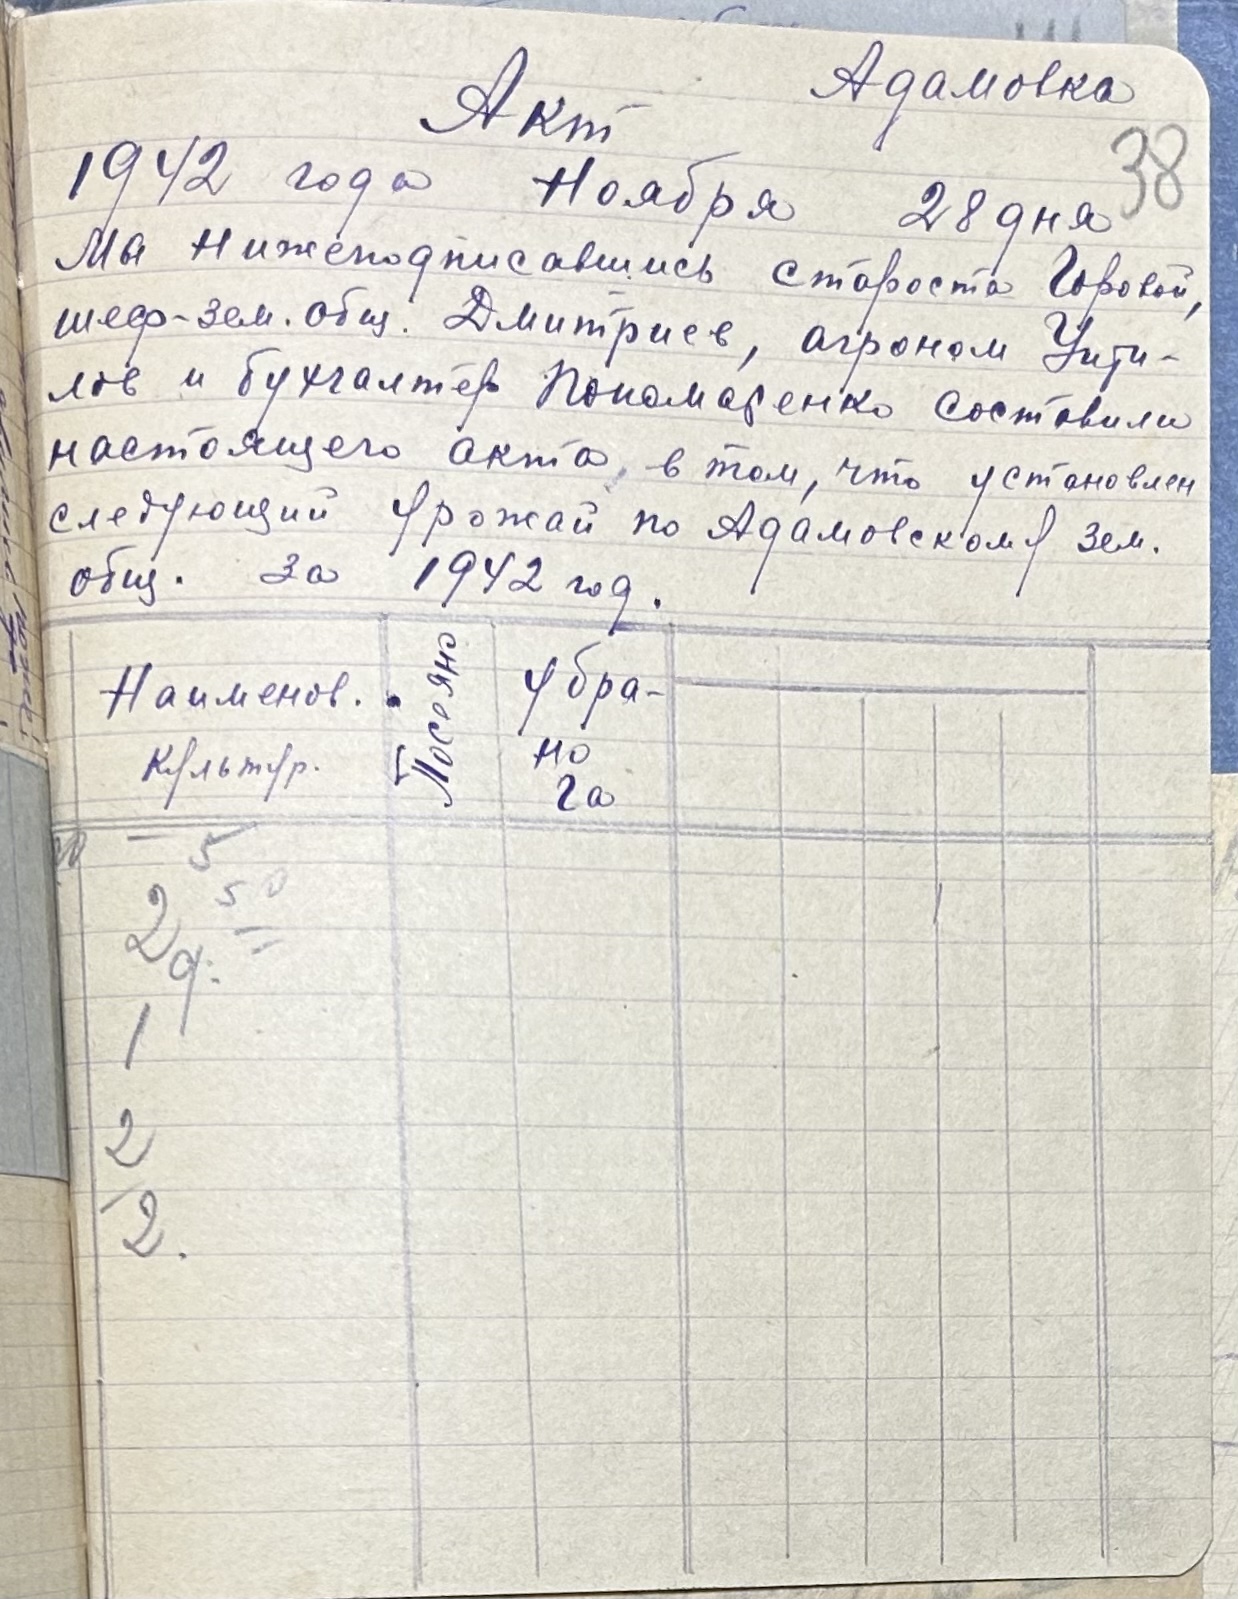 Адамовка
Акт
38
1942 года Ноября 28 дня
Мы нижеподписавшись староста Горовой,
шеф-зем. общ. Дмитриев, агроном
лов и бухгалтер Пономаренко составили
настоящего акта, в том, что установлен
следующий урожай по Адамовскому зем.
общ. за 1942 год.
Наименов.
культур.
Посеяно
Убра-
но
га
5
50
2
1
2
2.